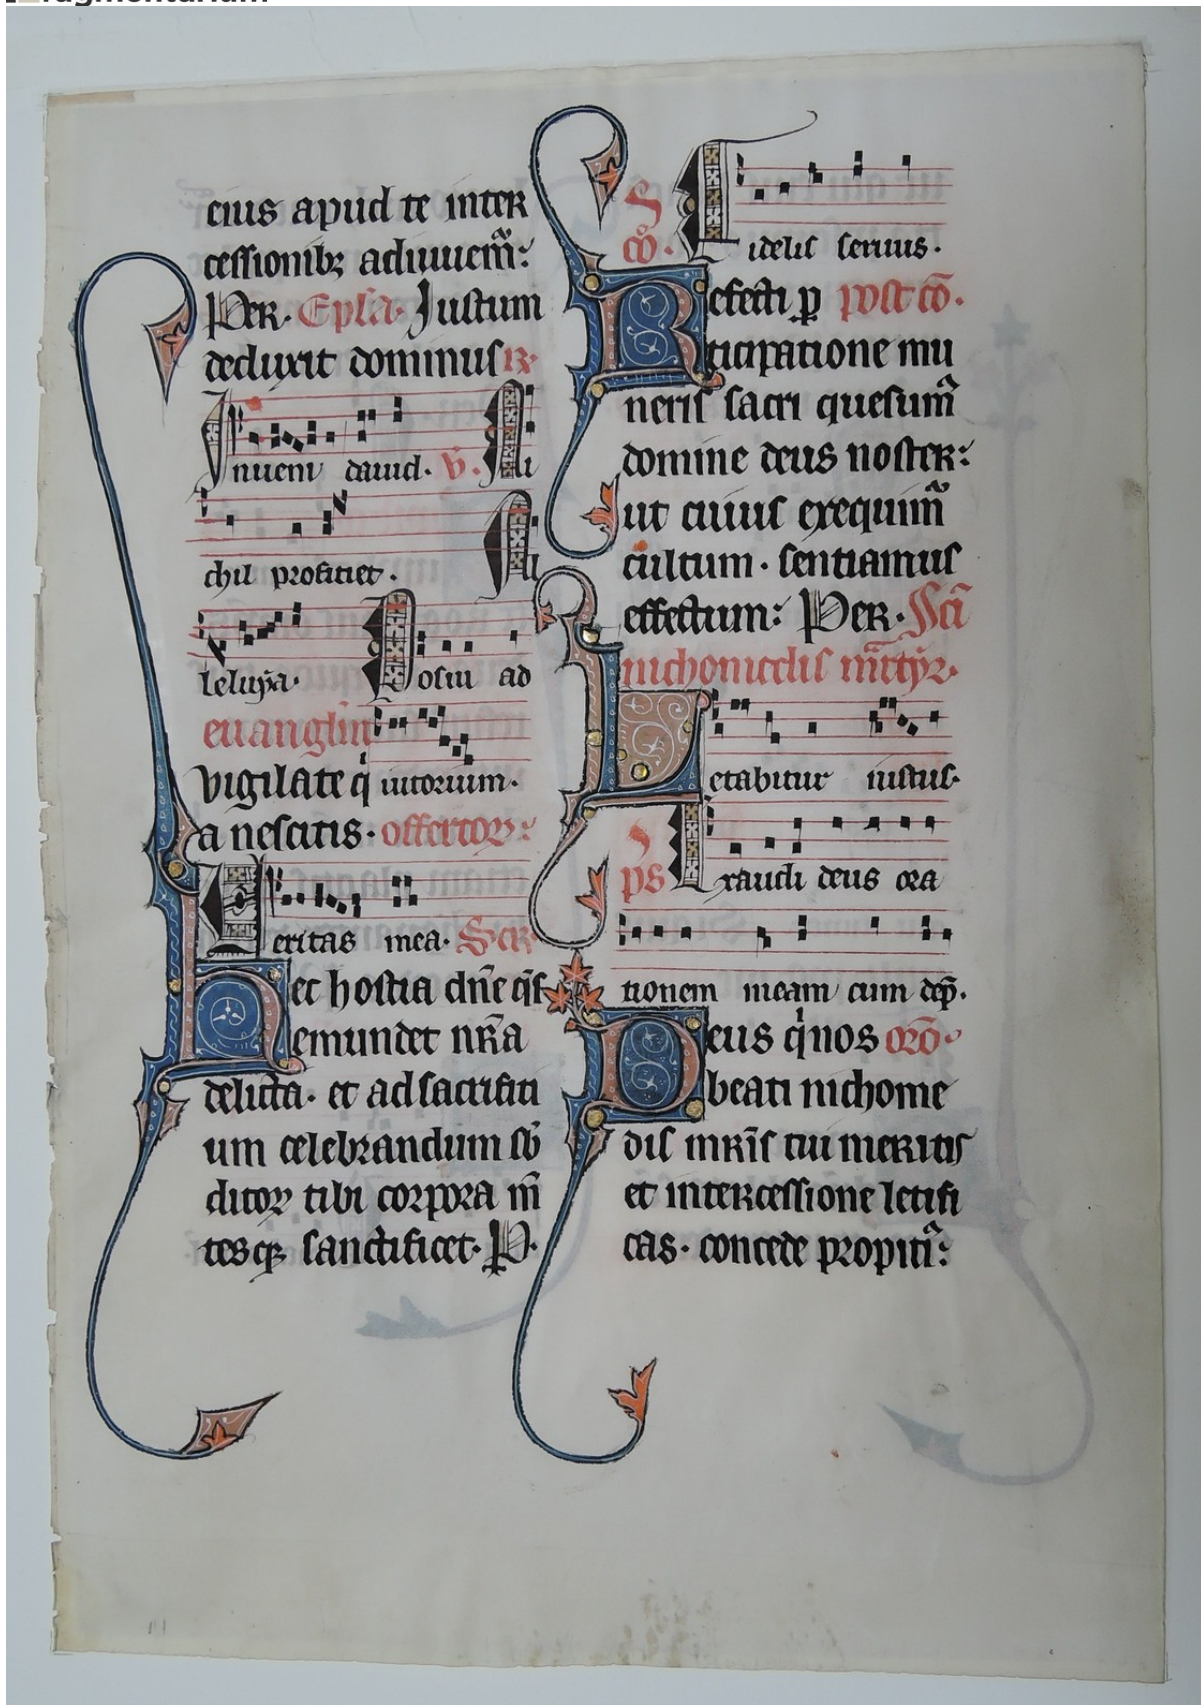 Fragmentarium
eius apud te inter
cessionibꝫ adiuuem᷑:
Per. Epl̄a. Iustum
deduxit dominus ℟.
Inueni dauid. v̄. Ni
chil proficiet. Al
leluya. Posui ad
euangliū iutorium.
vigilate q̇
a nescitis. offertoꝝ:
Ueritas mea. Scr̄
Hec hostia dn̄e q̄s
emundet nr̄a
delicta. et ad sacrifici
um celebrandum sb̄
ditoꝝ tibi corpora m̄
tesqꝫ sanctificet. P.
cō. Fidelis seruus.
Refecti ꝑ post cō.
ticipatione mu
neris sacri quesum᷑
domine deus noster:
ut cuius exequim᷑
cultum. sentiamus
effectum: Per. Sc̄i
nichomedis m̄rtyr.
Letabitur iustus.
ps Exaudi deus ora
tionem meam cum dep̄.
Deus q̇ nos or̄o.
beati nichome
dis mr̄is tui meritis
et intercessione letifi
cas. concede propiti᷑: